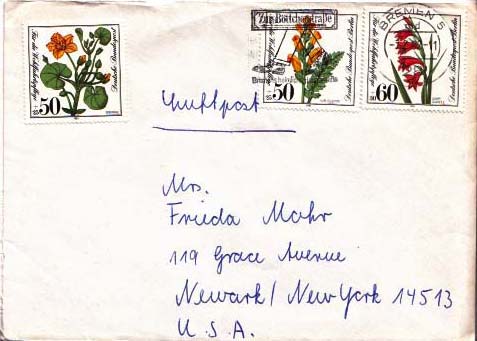 Zur Böttcherstraße
BREMEN 5
Für die Wohlfahrtspflege
Deutsche Bundespost
50
+25
Für die Wohlfahrtspflege
Deutsche Bundespost Berlin
50
Für die Wohlfahrtspflege
Deutsche Bundespost Berlin
60
Luftpost
Mrs.
Frieda Mohr
119 Grace Avenue
Newark / New York 14513
U.S.A.